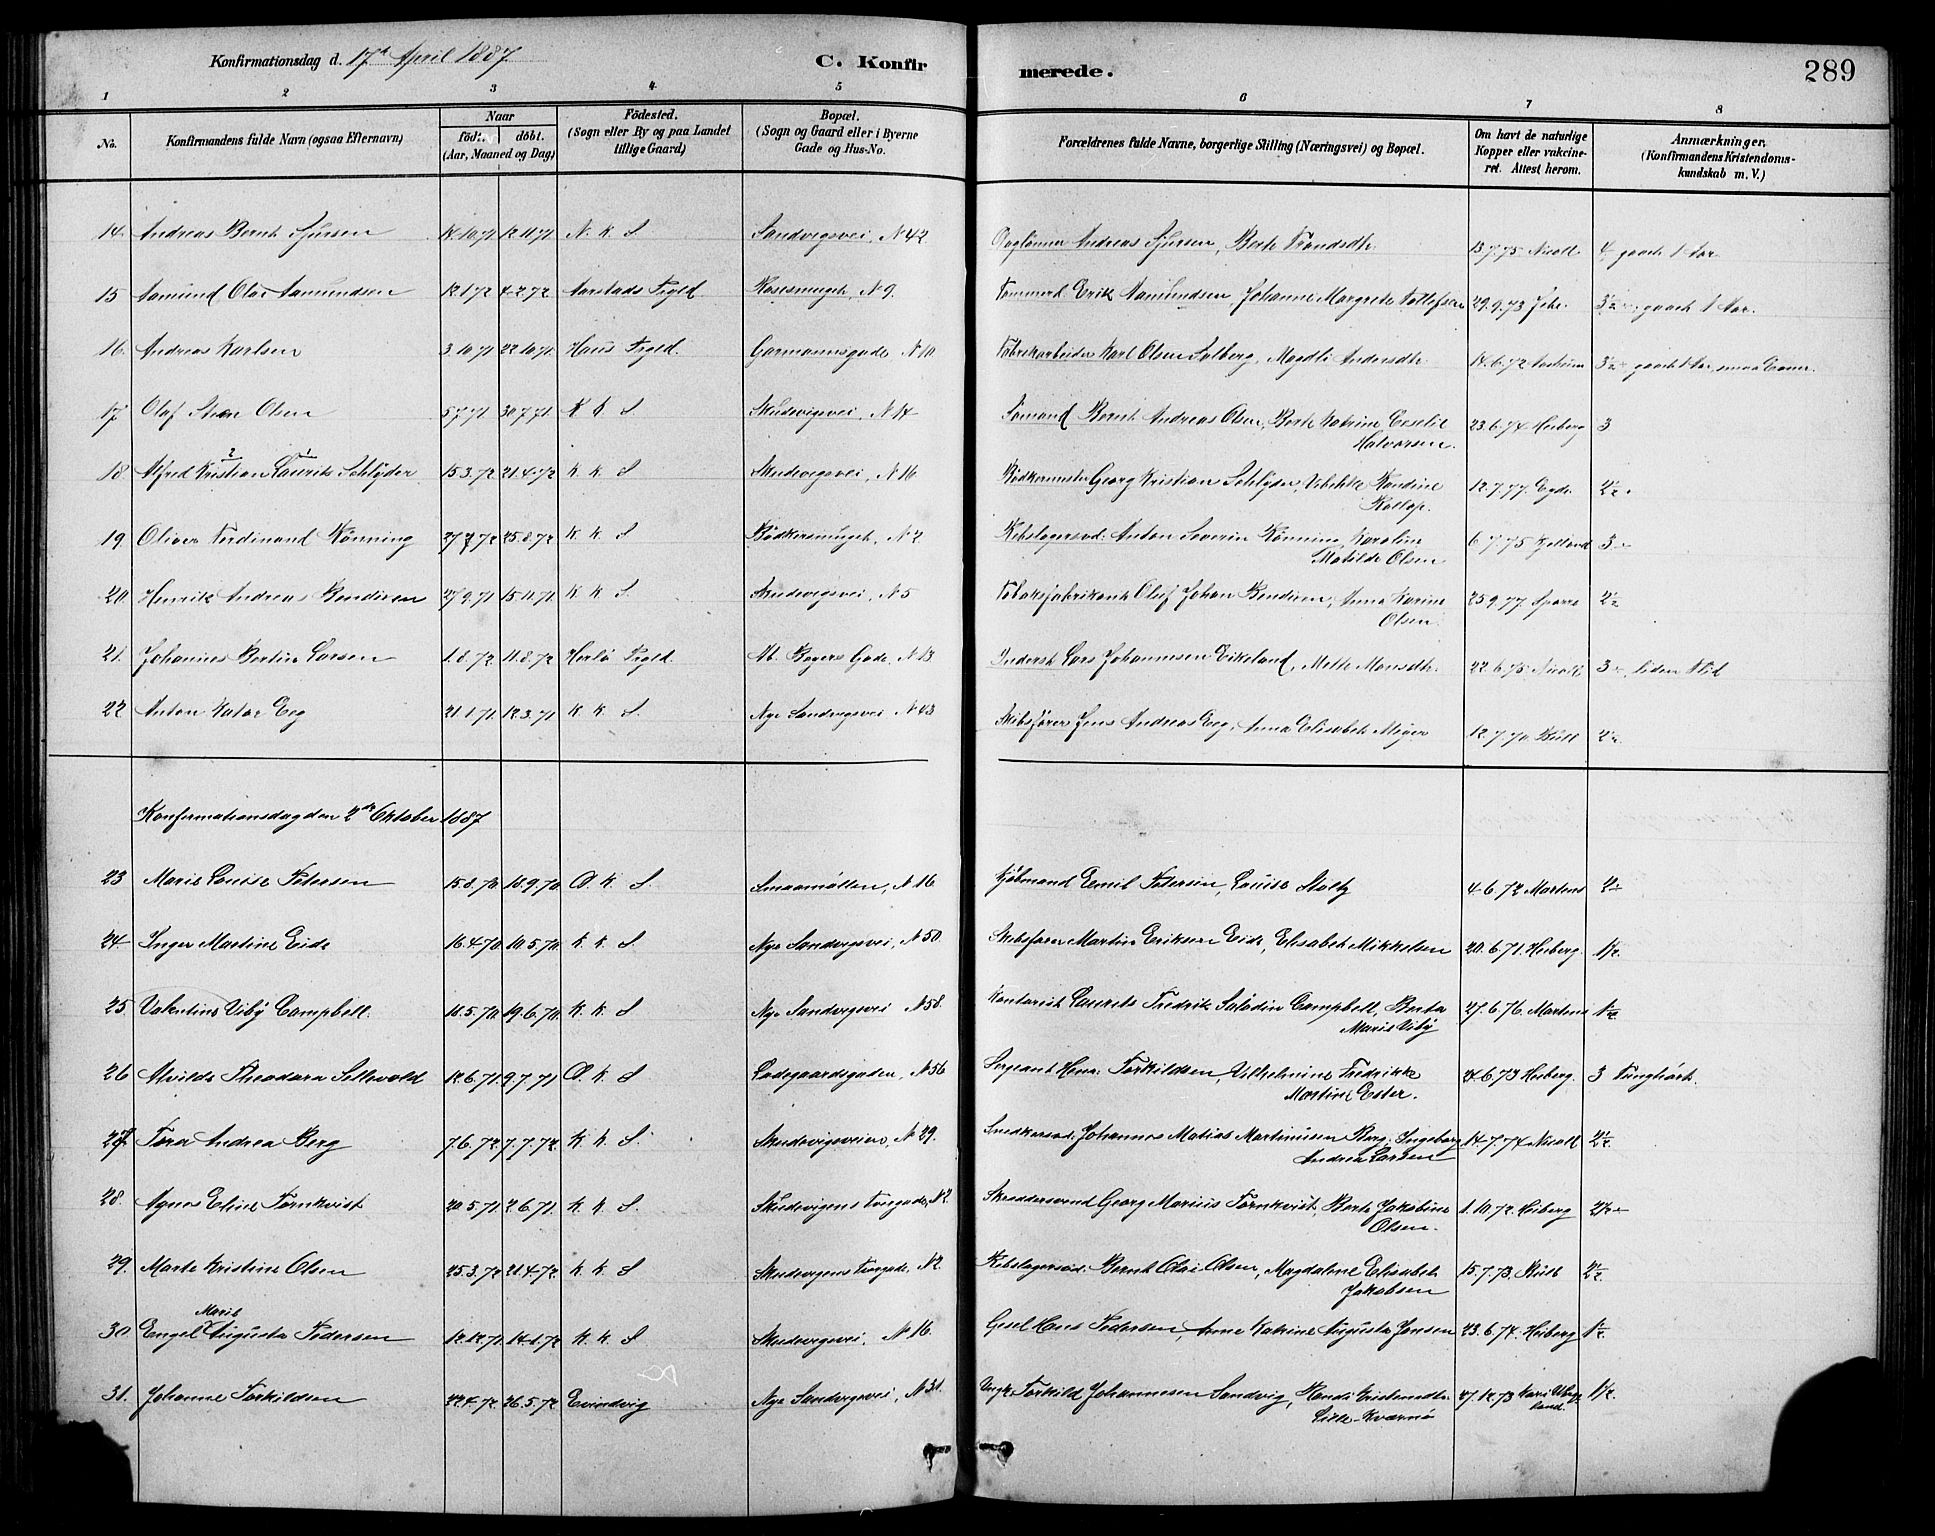 Konfirmationsdag d. 17de April 1887. C. Konfirmerede. 289
1 2 3 4 5 6 7 8
No. Konfirmandens fulde Navn (ogsaa Efternavn) Naar født. døbt. (Aar, Maaned og Dag) Fødested. (Sogn eller By og paa Landet tillige Gaard) Bopæl. (Sogn og Gaard eller i Byerne Gade og Hus-No. Forældrenes fulde Navne, borgerlige Stilling (Næringsvei) og Bopæl. Om havt de naturlige Kopper eller vakcineret. Attest herom. Anmærkninger, (Konfirmandens Kristendomskundskab m. V.)
14. Andreas Bernt Sjursen 12.11.71 N. K. S Sandvigsvei, N 42. Andreas Sjursen, Berte 13.7.75 Nicoll 4 gaaet 1 Aar
15 Aamund Olai Aamundsen 12.1.72 4.2.72 Aarstads Prgld N 9. Erik Aamundsen, Johanne Margrete Tollefsen 29.9.73 gaaet 1 Aar.
16. Andreas Karlsen 3.10.71 22.10.71 Haus Prgld. Garmannsgade, N 10. Fabrikarbeider Karl Olsen Solberg, Magdli Andersdtr 14.6.72 gaaet 1 Aar, smaa Evner.
17. Olaf Olsen 5.7.71 30.7.71 K K S Skudevigsvei, N 14 Sømand Bernt Andreas Olsen, Berte Katrine Halvorsen. 23.6.74 Heiberg 3
18. Alfred Kristian Laurits Schlyder 15.3.72 21.4.72 K K S Skudevigsvei, N 16 Georg Kristian Schlyder, Vibekke 12.7.77. Egde 2½.
19. Oliver Ferdinand Rønning 25.8.72 K. K. S Bødkersmuget, N 2 Anton Severin Rønning, Karoline Matilde Olsen 6.7.75 Kjelland 3
20. Henrik Andreas Bendixen 27.9.71 15.11.71 K K S. Skudevigsvei, N 5 Tobaksfabrikant Oluf Johan Bendixen, Anna Karine Olsen. 25.9.77. Sparre 2½
21. Johannes Bertin Larsen 1.8.72. 11.8.72 Herlø Prgld. M. Beyers Gade, N 13 Inderst Lars Johannesen Eikeland, Mette Monsdtr. 22.6.75. Nicoll 3 liden Flid
22 Anton Eeg 21.1.71 12.3.71 K K. S. Nye Sandvigsvei N 43 Skibsfører Jens Andreas Eeg, Anna Elisabet Meyer 12.7.71. Bull 2½.
Konfirmationsdag den 2de Oktober 1887
23 Marie Louise Petersen 15.8.70 18.9.70 D. K. S. Smaamøllen, N 16 Kjøbmand Emil Petersen, Louise Stoltz 4.6.72 Martens 2
24 Inger Martine Eide 16.4.70 10.5.70. K. K. S. Nye Sandvigsvei, N 50. Skibsfører Martin Eriksen Eide, Elisabet Mikkelsen 20.6.71. Heiberg. 1½.
25. Valentine Viby Campbell. 11.5.70 19.6.70. K. K. S Nye Sandvigsvei N 58. Kontorist Laurits Fredrik Saladin Campbell, Berta Marie Viby 27.6.76. Martens 1½
26 Alvilde Theodora Sellevold 12.6.71 9.7.71 D. K. S Ladegaardsgaden, N 56 Sergeant Torkildsen, Vilhelmine Fredrikke Martine Ester. 24.6.73 Heiberg. 3 Tunghørt.
27. Tora Andrea Berg 7.6.72 7.7.72. K. K. S. Skudevigsveien, N 29. Snedkersvd. Johannes Matias Martinusen Berg, Ingeborg Andrea Larsen 14.7.74 Nicoll 2½
28. Agnes Eline Tørnkvist 20.5.71 2.6.71. K. K S. Skudevigens Tvergade, N 2. Skræddersvend Georg Marius Tørnkvist, Berte Jakobine Olsen. 1.10.72. Heiberg 2½
29. Marte Kristine Olsen 25.3.72 21.4.72. K. K. S Skudevigens Tvergade, N 2. Rebslagersvd. Bernt Olai Olsen, Magdalene Elisabet Jakobsen 15.7.73. Bull 2½
30. Engel Marie Augusta Pedersen 12.12.71 14.1.72 K. K. S Skudevigsvei, N 16. Gesel Hans Pedersen, Anne Katrine Augusta Jansen 23.6.74. Heiberg 1½
31. Johanne Torkildsen 22.4.72 26.5.72 Evindvig Nye Sandvigsvei, N 31. Torkild Johannesen Sandvig, Kristensdtr. Lille-Kværnø 27.12.73 1½.